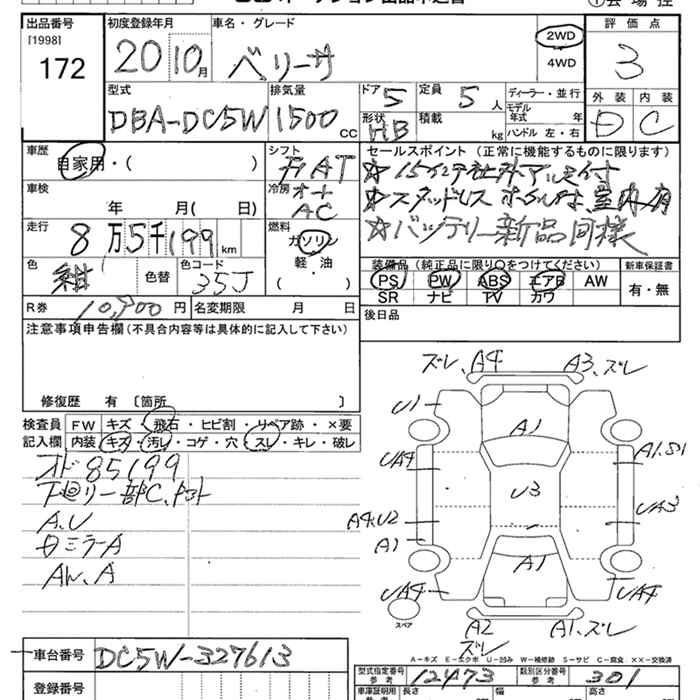 出品番号 初度登録年月 車名・グレード 評価点
[1998] 172 20年10月 ベリーサ 2WD 4WD 3
外装 内装
D C
型式 DBA-DC5W 排気量 1500cc ドア 5 定員 5人 ディーラー・並行
形状 HB 積載 kg モデル年式 年
ハンドル 左・右
車歴 自家用・( ) シフト FAT セールスポイント (正常に機能するものに限ります)
車検 年 月( 日) 冷房 オート AC
☆スタッドレス
走行 8万5千199km 燃料 ガソリン 軽・油 ( )
☆バッテリー新品同様
色 紺 色替 色コード 35J
装備品 (純正品に限り○をつけてください) 新車保証書
PS PW ABS エアB AW 有・無
SR ナビ TV カワ
R券 10,700円 名変期限 月 日 後日品
注意事項申告欄 (不具合内容等は具体的に記入して下さい)
修復歴 有 〔箇所 〕
検査員記入欄 FW キズ・飛石・ヒビ割・リペア跡・×要
内装 キズ・汚レ・コゲ・穴・スレ・キレ・破レ
オド85199
下廻リ一部C、
A.U
ミラーA
AW.A
ズレ、A4 A3、ズレ
U1
A1
UA4 A1.S1
U3
A4.U2 UA3
A1
A1
UA4 UA4
スペア
A2 A1、ズレ
ズレ
A－キズ E－エクボ U－凹み W－補修跡 S－サビ C－腐食 ××－交換済
車台番号 DC5W-327613
型式指定番号 参考 12473 類別区分番号 参考 301
登録番号 車庫証明用 参考 長さ 幅 高さ